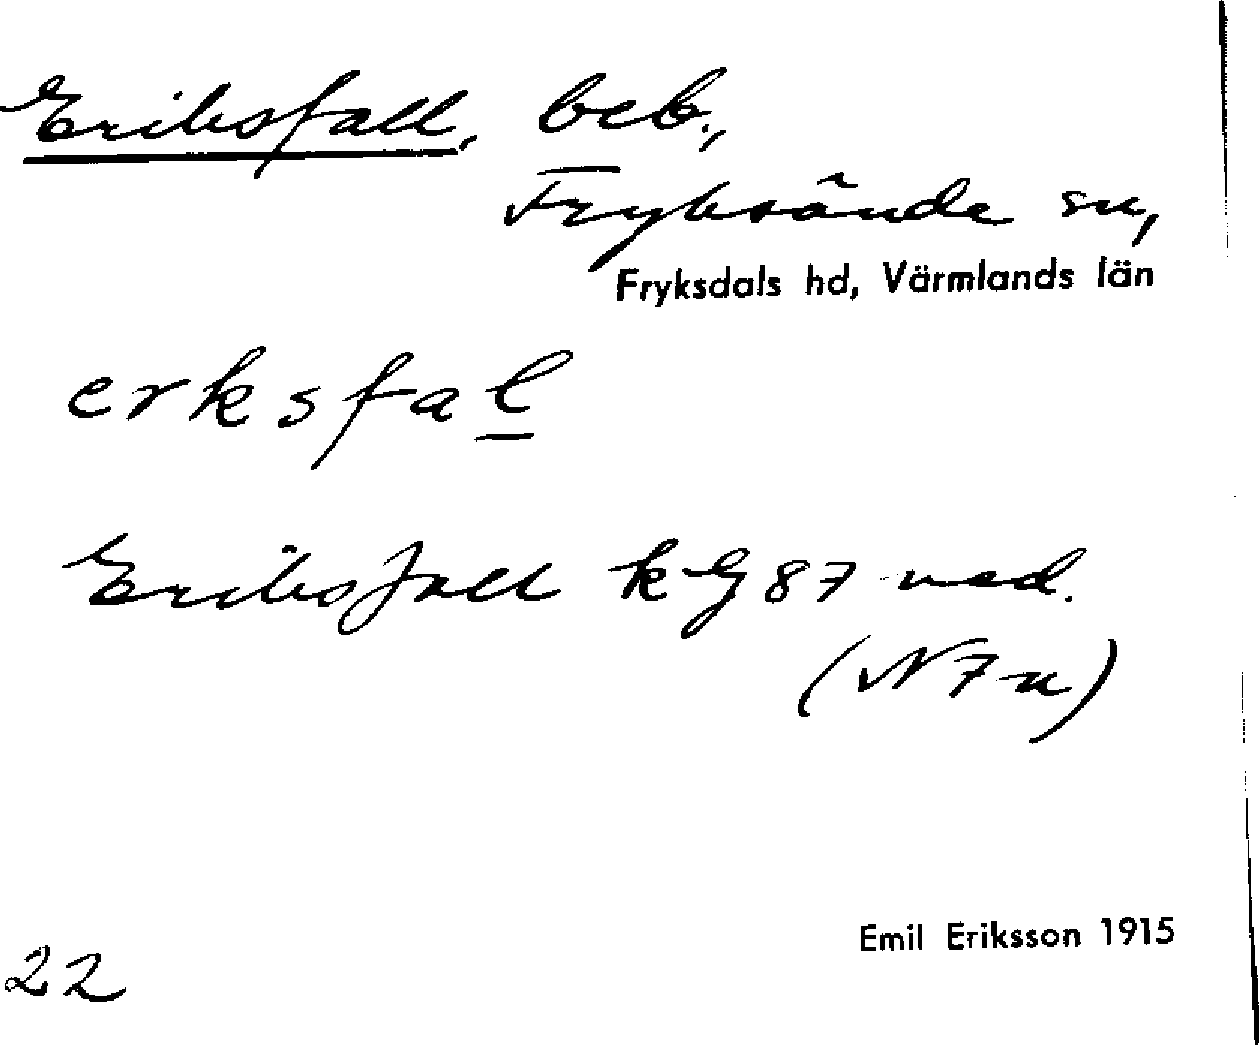 Eriksfall, beb.,
Fryksände sn,
Fryksdals hd, Värmlands län
erksfal
Eriksfall kG 87 ned.
(N 7 u)
Emil Eriksson 1915
22